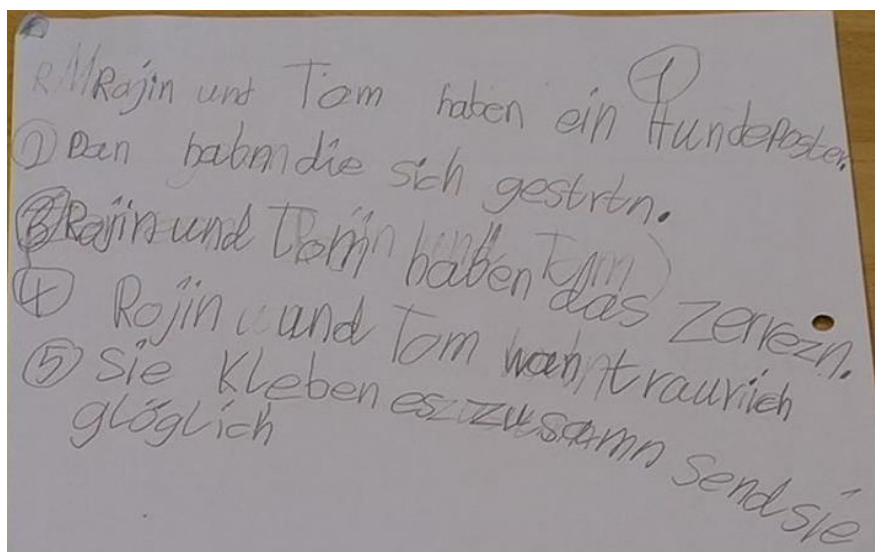 Rojin und Tom haben ein Hundeposter. ①
② Dan habm die sich gestrtn.
③ Rojin und Tom haben das zerrezn.
④ Rojin und Tom wahn traurich
⑤ Sie kleben es zusamn send sie
glöglich